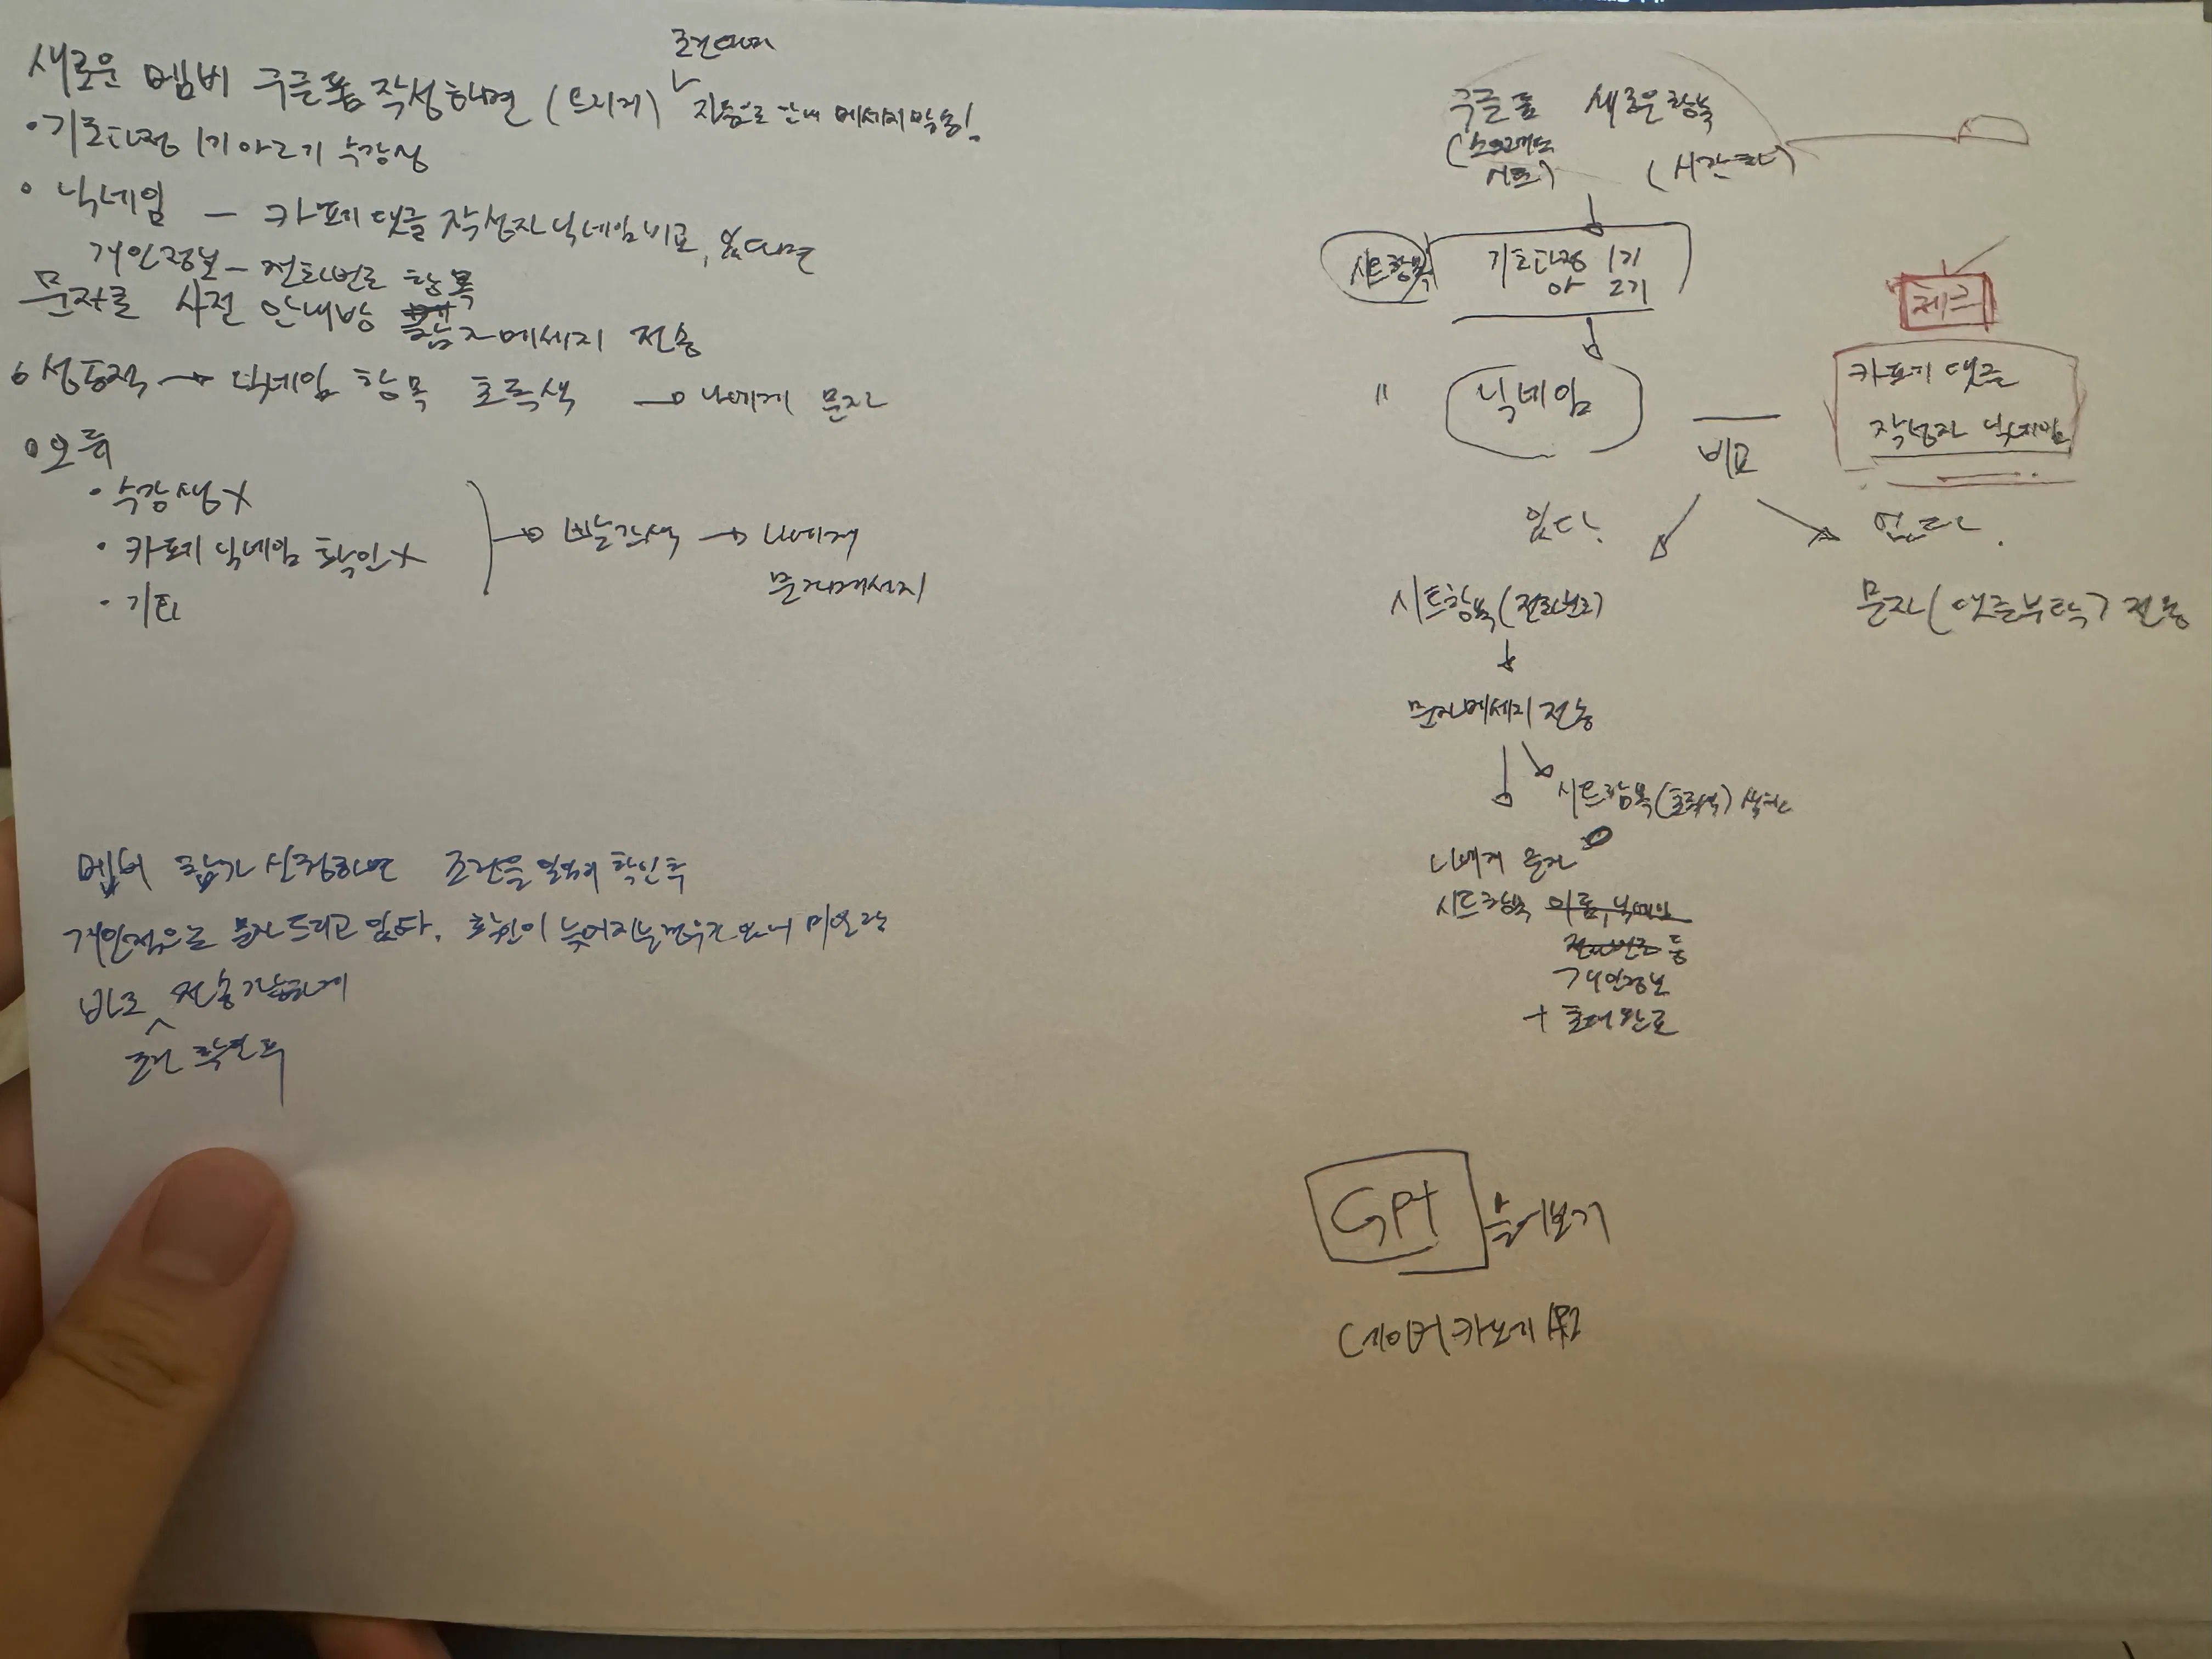 조건아래
새로운 멤버 구글폼 작성하면 (트리거) 자동으로 안내 메세지 발송!
• 기초과정 1기 아 2기 수강생
• 닉네임 – 카페 댓글 작성자 닉네임 비교, 있다면
개인정보 – 전화번호 항목
문자로 사전 안내방 문자메세지 전송
• 성공적 → 닉네임 항목 초록색 → 나에게 문자
• 오류
• 수강생 X
• 카페 닉네임 확인 X
• 기타
→ 빨간색 → 나에게
문자메세지
멤버 참가 신청하면 조건을 일일히 확인 후
개인적으로 문자드리고 있다. 확인이 늦어지는 경우가 있으니
바로 전송 가능하게
조건 확인 후
구글폼 새로운 항목
(스프레드 시트) (시간화)
시트항목 기초과정 1기
아 2기
체크
" 닉네임
비교
카페 댓글
작성자 닉네임
있다.
없다.
시트항목 (전화번호)
문자 (댓글부탁) 전송
문자메세지 전송
시트항목 (초록색)
나에게 문자
시트항목 이름, 닉네임
전화번호 등
개인정보
+ 초대 완료
GPT 물어보기
(네이버 카페